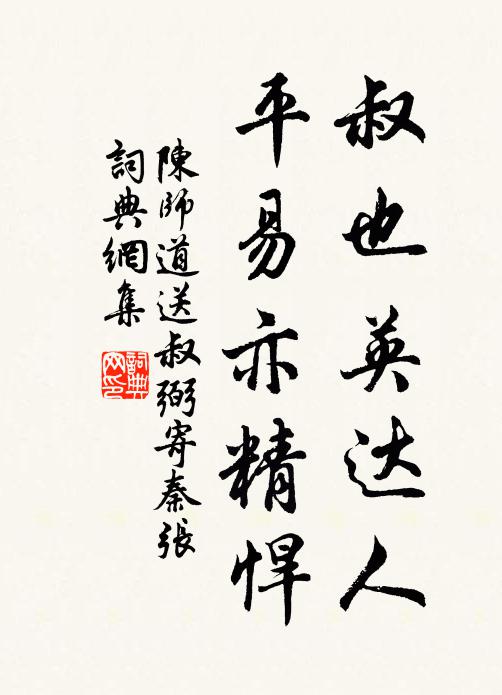 叔也英达人
平易亦精悍
陳師道送叔弼寄秦張
詞典網集
詞典网印